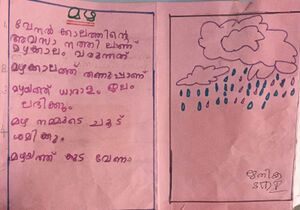 മഴ
വേനൽ കാലത്തിന്റെ
അവസാനത്തിലാണ്
മഴക്കാലം വരുന്നത്
2 മഴക്കാലത്ത് തണുപ്പാണ്
3 മഴയത്ത് ധാരാളം ജലം
ലഭിക്കും.
4 മഴ നമ്മുടെ ചൂട്
ശമിക്കും.
മഴയത്ത് കുട വേണം